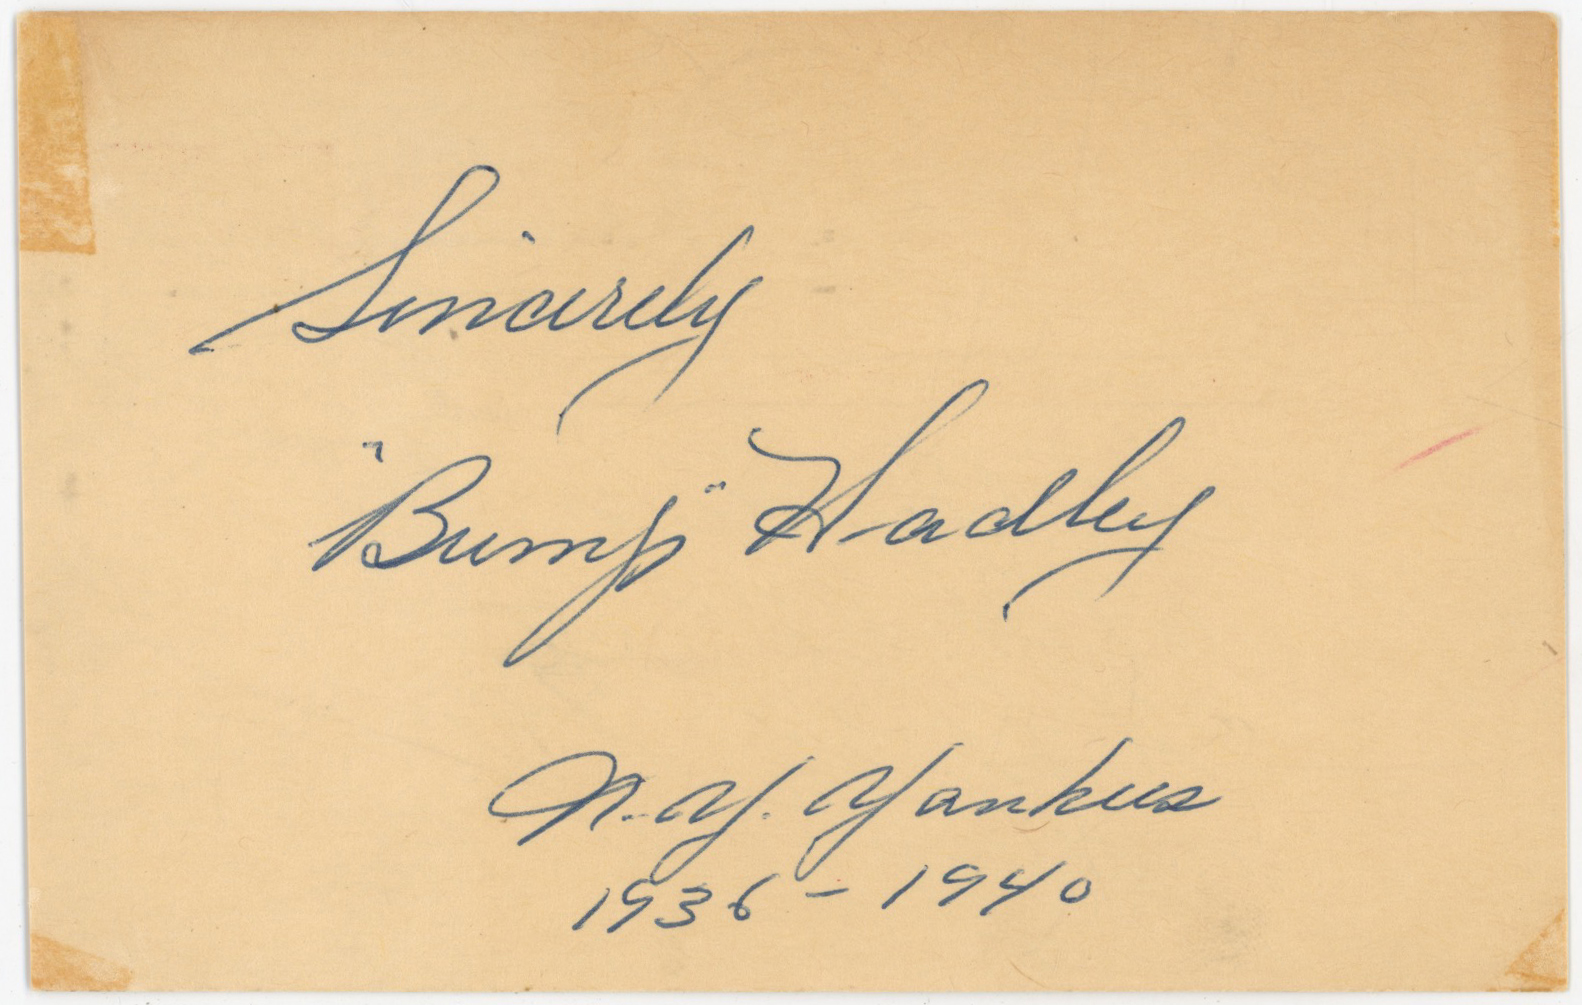 Sincerely
"Bump" Hadley
N.Y. Yankees
1936 - 1940